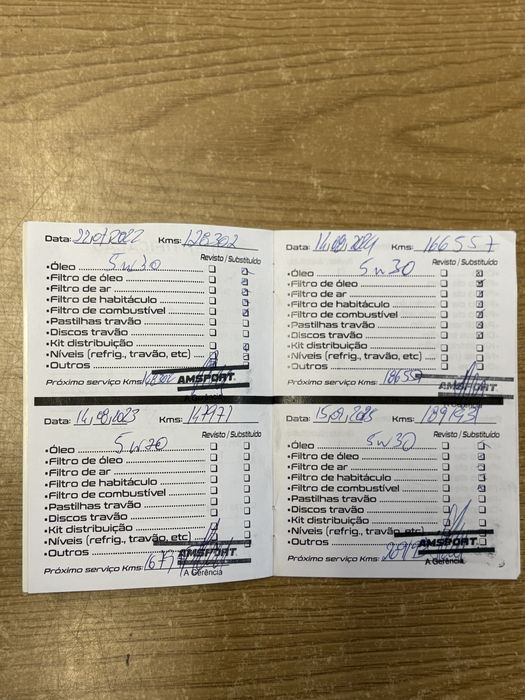 Data: Kms: 128302
Revisto / Substituído
•Óleo 5w30
•Filtro de óleo
•Filtro de ar
•Filtro de habitáculo
•Filtro de combustível
•Pastilhas travão
•Discos travão
•Kit distribuição
•Níveis (refrig., travão, etc)
•Outros
Próximo serviço Kms:
AMSPORT
Data: 14,08,2023 Kms: 147971
Revisto / Substituído
•Óleo 5w30
•Filtro de óleo
•Filtro de ar
•Filtro de habitáculo
•Filtro de combustível
•Pastilhas travão
•Discos travão
•Kit distribuição
•Níveis (refrig., travão, etc)
•Outros
Próximo serviço Kms:
AMSPORT
A Gerência
Data: 14,08,2024 Kms: 166557
Revisto / Substituído
•Óleo 5w30
•Filtro de óleo
•Filtro de ar
•Filtro de habitáculo
•Filtro de combustível
•Pastilhas travão
•Discos travão
•Kit distribuição
•Níveis (refrig., travão, etc)
•Outros
Próximo serviço Kms: 186557
AMSPORT
Data: Kms:
Revisto / Substituído
•Óleo 5w30
•Filtro de óleo
•Filtro de ar
•Filtro de habitáculo
•Filtro de combustível
•Pastilhas travão
•Discos travão
•Kit distribuição
•Níveis (refrig., travão, etc)
•Outros
Próximo serviço Kms:
AMSPORT
A Gerência